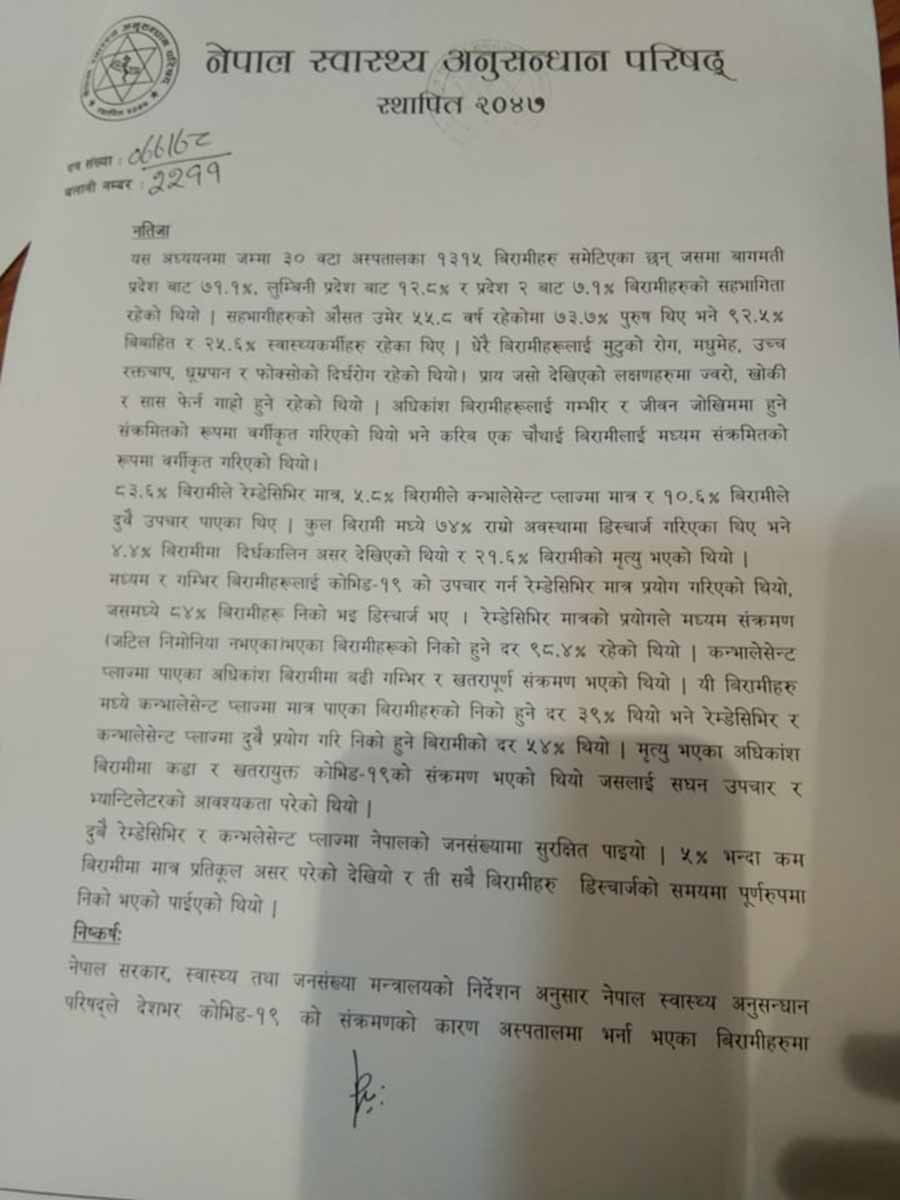 नेपाल स्वास्थ्य अनुसन्धान परिषद्
स्थापित २०४७
पत्र संख्या : ०७७/७८
चलानी नम्बर : २२११
नतिजा
यस अध्ययनमा जम्मा ३० वटा अस्पतालका १३१५ बिरामीहरु समेटिएका छन् जसमा बागमती
प्रदेश बाट ७१.१%, लुम्बिनी प्रदेश बाट १२.८% र प्रदेश २ बाट ७.१% बिरामीहरुको सहभागिता
रहेको थियो | सहभागीहरुको औसत उमेर ५५.८ वर्ष रहेकोमा ७३.७% पुरुष थिए भने ९२.५%
बिबाहित र २५.६% स्वास्थ्यकर्मीहरु रहेका थिए | धेरै बिरामीहरूलाई मुटुको रोग, मधुमेह, उच्च
रक्तचाप, धूम्रपान र फोक्सोको दिर्घरोग रहेको थियो। प्राय जसो देखिएको लक्षणहरुमा ज्वरो, खोकी
र सास फेर्न गाह्रो हुने रहेको थियो | अधिकांश बिरामीहरूलाई गम्भीर र जीवन जोखिममा हुने
संक्रमितको रूपमा वर्गीकृत गरिएको थियो भने करिब एक चौथाई बिरामीलाई मध्यम संक्रमितको
रूपमा वर्गीकृत गरिएको थियो।
८३.६% बिरामीले रेम्डेसिभिर मात्र, ५.८% बिरामीले कन्भालेसेन्ट प्लाज्मा मात्र र १०.६% बिरामीले
दुवै उपचार पाएका थिए | कुल बिरामी मध्ये ७४% राम्रो अवस्थामा डिस्चार्ज गरिएका थिए भने
४.४% बिरामीमा दिर्घकालिन असर देखिएको थियो र २१.६% बिरामीको मृत्यु भएको थियो |
मध्यम र गम्भिर बिरामीहरूलाई कोभिड-१९ को उपचार गर्न रेम्डेसिभिर मात्र प्रयोग गरिएको थियो,
जसमध्ये ८४% बिरामीहरू निको भइ डिस्चार्ज भए । रेम्डेसिभिर मात्रको प्रयोगले मध्यम संक्रमण
(जटिल निमोनिया नभएका)भएका बिरामीहरूको निको हुने दर ९८.४% रहेको थियो | कन्भालेसेन्ट
प्लाज्मा पाएका अधिकांश बिरामीमा बढी गम्भिर र खतरापूर्ण संक्रमण भएको थियो | यी बिरामीहरु
मध्ये कन्भालेसेन्ट प्लाज्मा मात्र पाएका बिरामीहरुको निको हुने दर ३९% थियो भने रेम्डेसिभिर र
कन्भालेसेन्ट प्लाज्मा दुबै प्रयोग गरि निको हुने बिरामीको दर ५४% थियो | मृत्यु भएका अधिकांश
बिरामीमा कडा र खतरायुक्त कोभिड-१९को संक्रमण भएको थियो जसलाई सघन उपचार र
भ्यान्टिलेटरको आवश्यकता परेको थियो |
दुबै रेम्डेसिभिर र कन्भलेसेन्ट प्लाज्मा नेपालको जनसंख्यामा सुरक्षित पाइयो | ५% भन्दा कम
बिरामीमा मात्र प्रतिकूल असर परेको देखियो र ती सबै बिरामीहरु डिस्चार्जको समयमा पूर्णरुपमा
निको भएको पाईएको थियो |
निष्कर्ष:
नेपाल सरकार, स्वास्थ्य तथा जनसंख्या मन्त्रालयको निर्देशन अनुसार नेपाल स्वास्थ्य अनुसन्धान
परिषद्ले देशभर कोभिड-१९ को संक्रमणको कारण अस्पतालमा भर्ना भएका बिरामीहरुमा